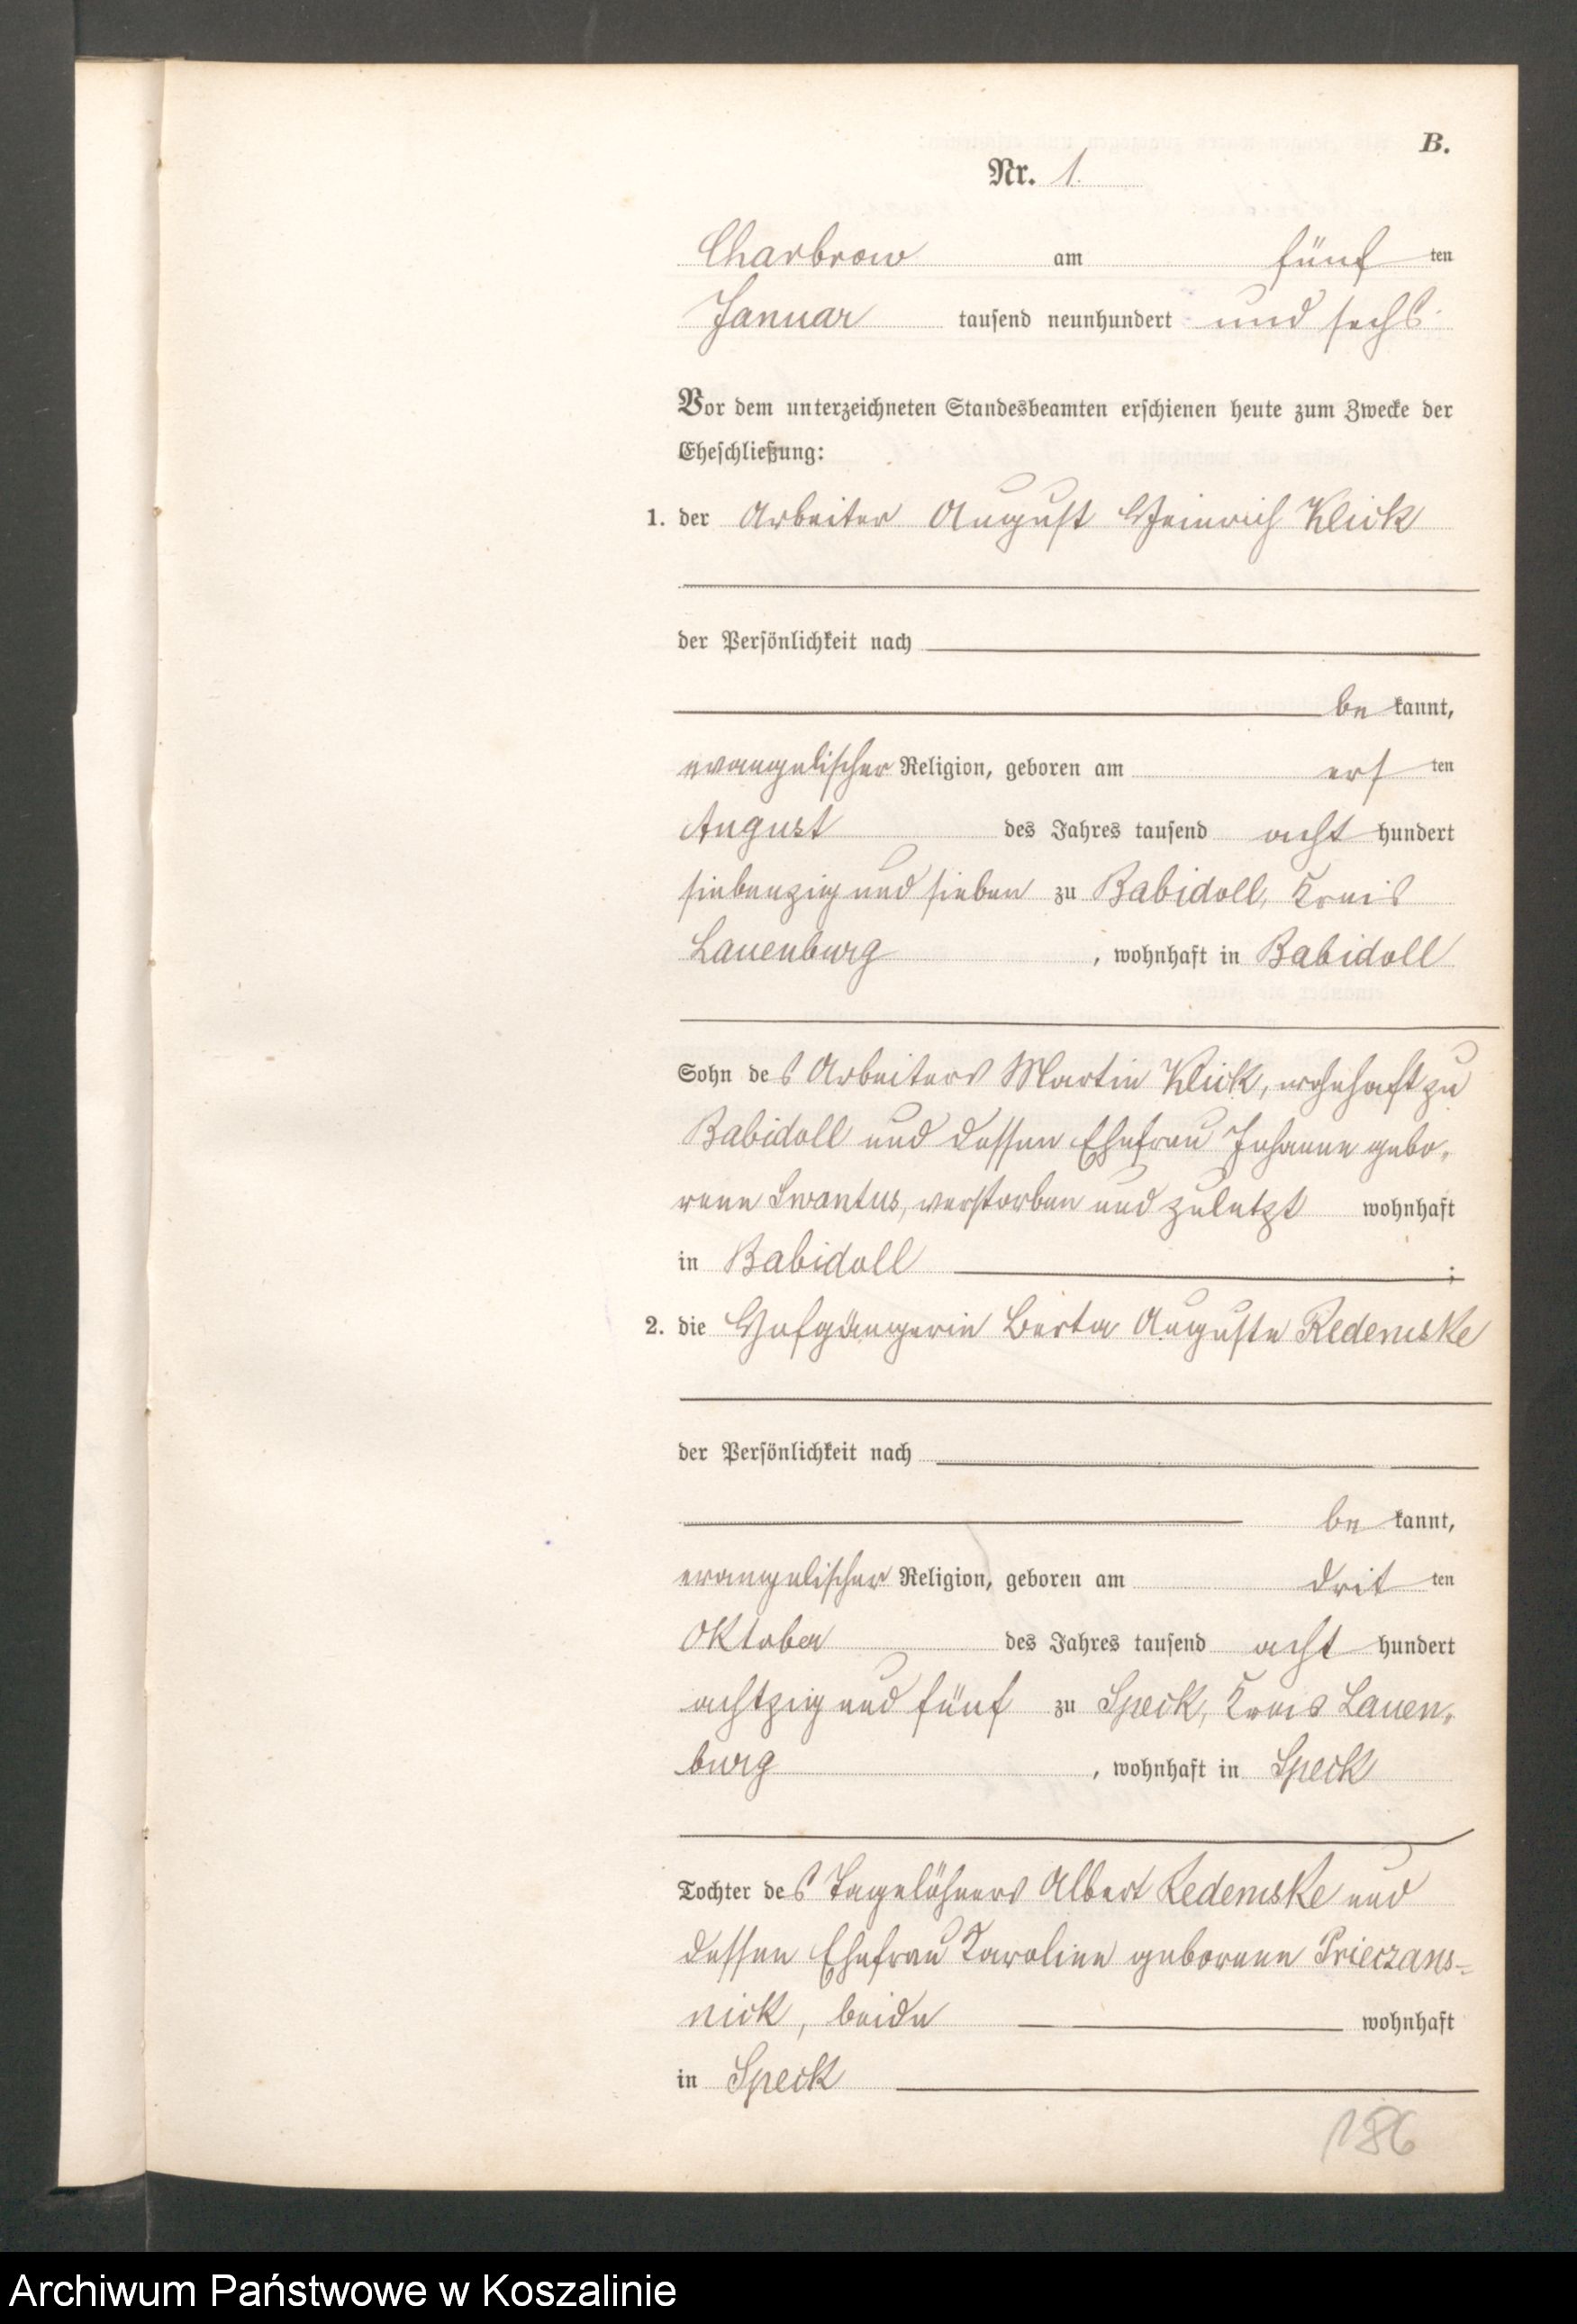 B.
Nr. 1.
Charbrow am fünf ten
Januar tausend neunhundert und sechs.
Vor dem unterzeichneten Standesbeamten erschienen heute zum Zwecke der
Eheschließung:
1. der Arbeiter August Heinrich Klick
der Persönlichkeit nach
be kannt,
evangelischer Religion, geboren am ers ten
August des Jahres tausend acht hundert
siebenzig und sieben zu Babidoll, Kreis
Lauenburg , wohnhaft in Babidoll
Sohn des Arbeiters Martin Klick, wohnhaft zu
Babidoll und dessen Ehefrau Johanne gebo-
rene Swantus, verstorben und zuletzt wohnhaft
in Babidoll ;
2. die Hofgängerin Berta Auguste Redemske
der Persönlichkeit nach
be kannt,
evangelischer Religion, geboren am drit ten
Oktober des Jahres tausend acht hundert
achtzig und fünf zu Speck, Kreis Lauen-
burg , wohnhaft in Speck
Tochter des Tagelöhners Albert Redemske und
dessen Ehefrau Karoline geborene Prieczans-
nick, beide wohnhaft
in Speck
186
Archiwum Państwowe w Koszalinie